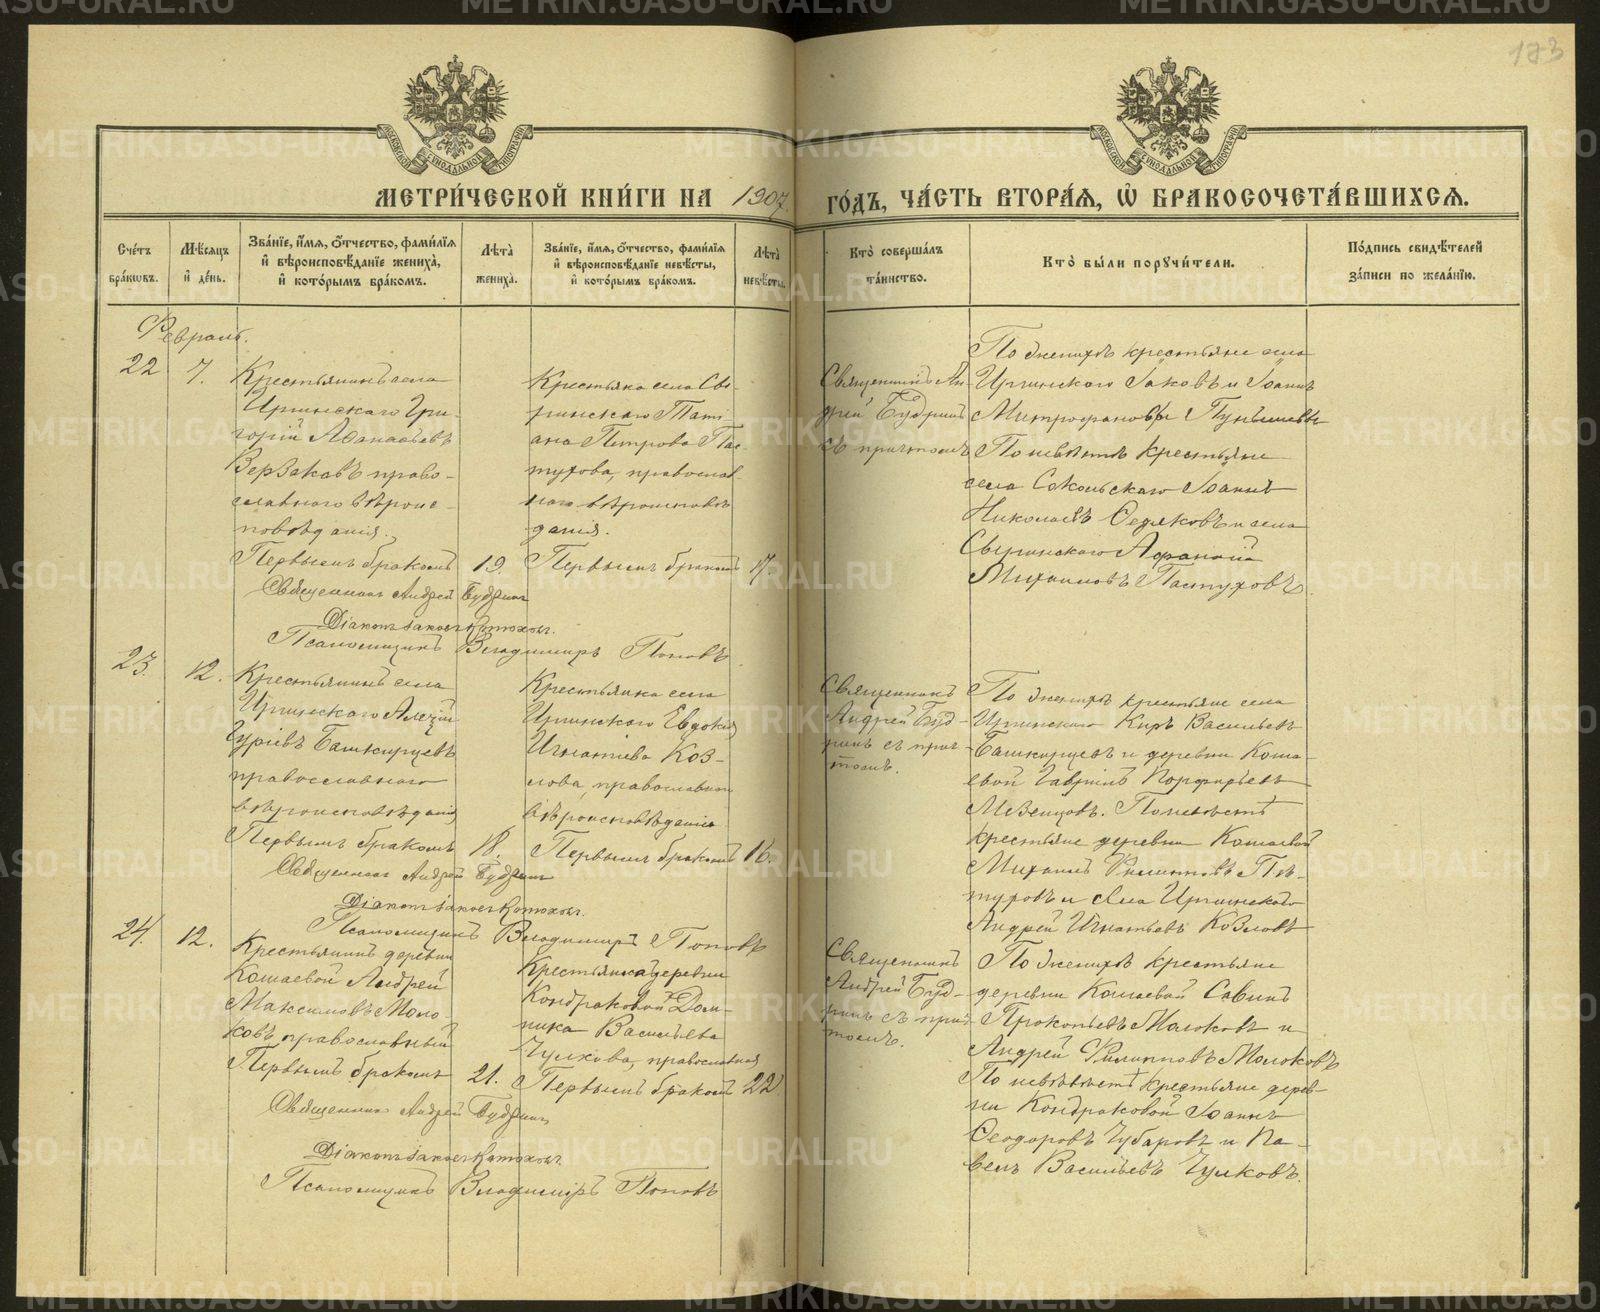 173
МОСКОВСКОЙ СѴНОДАЛЬНОЙ ТИПОГРАФІИ
МОСКОВСКОЙ СѴНОДАЛЬНОЙ ТИПОГРАФІИ
МЕТРИ́ЧЕСКОЙ КНИ́ГИ НА 1907 ГО́ДЪ, ЧА́СТЬ ВТОРА́Я, Ѡ БРАКОСОЧЕТА́ВШИХСЯ.
Сче́тъ бра́кѡвъ.
Мѣ́сяцъ и҆ де́нь.
Зва́нїе, и҆́мя, ѻ҆́тчество, фами́лїя и҆ вѣроисповѣ́данїе жениха̀, и҆ кото́рымъ бра́комъ.
Лѣ́та жениха̀.
Зва́нїе, и҆́мя, ѻ҆́тчество, фами́лїя и҆ вѣроисповѣ́данїе невѣ́сты, и҆ кото́рымъ бра́комъ.
Лѣ́та невѣ́сты.
Кто̀ соверша́лъ та́инство.
Кто̀ бы́ли порꙋчи́тели.
По́дпись свидѣ́телей за́писи по жела́нїю.
Февраль.
22
7.
Крестьянинъ села
Иргинскаго Гри-
горій Афанасьевъ
Верзаковъ право-
славнаго вѣроис-
повѣданія.
Первымъ бракомъ
19.
Крестьянка села Сы-
ринскаго Тать
яна Петрова Пас-
тухова, православ
наго вѣроисповѣ
данія.
Первымъ бракомъ
17.
Священникъ Ан-
дрей Будринъ
съ причтомъ
По женихѣ крестьяне села
Иргинскаго Іаковъ и Іоаннъ
Митрофановы
По невѣстѣ крестьяне
села Сокольскаго Іоаннъ
Николаевъ Седяковъ и села
Сыринскаго Афанасій
Михаиловъ Пастуховъ.
Священникъ Андрей Будринъ
Діаконъ Іаковъ
Псаломщикъ Владиміръ Поповъ
23.
12.
Крестьянинъ села
Иргинскаго Алексій
Гурьевъ Башкирцевъ
православнаго
вѣроисповѣданія
Первымъ бракомъ
18.
Крестьянка села
Иргинскаго Евдокія
Игнатіева Коз-
лова, православн
вѣроисповѣданія
Первымъ бракомъ
16.
Священникъ
Андрей Буд-
ринъ съ прич-
томъ.
По женихѣ крестьяне села
Иргинскаго Киръ Васильевъ
Башкирцевъ и деревни Коша-
евой Гавріилъ Порфирьевъ
Мезенцовъ. По невѣстѣ
крестьяне деревни Кошаевой
Михаилъ Филиповъ Пѣ-
туровъ и села Иргинскаго
Андрей Игнатьевъ Козловъ
Священникъ Андрей Будринъ
Діаконъ Іаковъ
Псаломщикъ Владиміръ Поповъ
24.
12.
Крестьянинъ деревни
Кошаевой Андрей
Максимовъ Моло-
ковъ, православный
Первымъ бракомъ
21.
Крестьянка деревни
Кондраковой Дом-
ника Васильева
Чулкова, православная
Первымъ бракомъ
22
Священникъ
Андрей Буд-
ринъ съ прич-
томъ.
По женихѣ крестьяне
деревни Кошаевой Савинъ
Прокопьевъ Молоковъ и
Андрей Филипповъ Молоковъ
По невѣстѣ крестьяне дерев-
ни Кондраковой Іоаннъ
Феодоровъ Чубаровъ и Па-
велъ Васильевъ Чулковъ.
Священникъ Андрей Будринъ
Діаконъ Іаковъ
Псаломщикъ Владиміръ Поповъ
METRIKI.GASO-URAL.RU